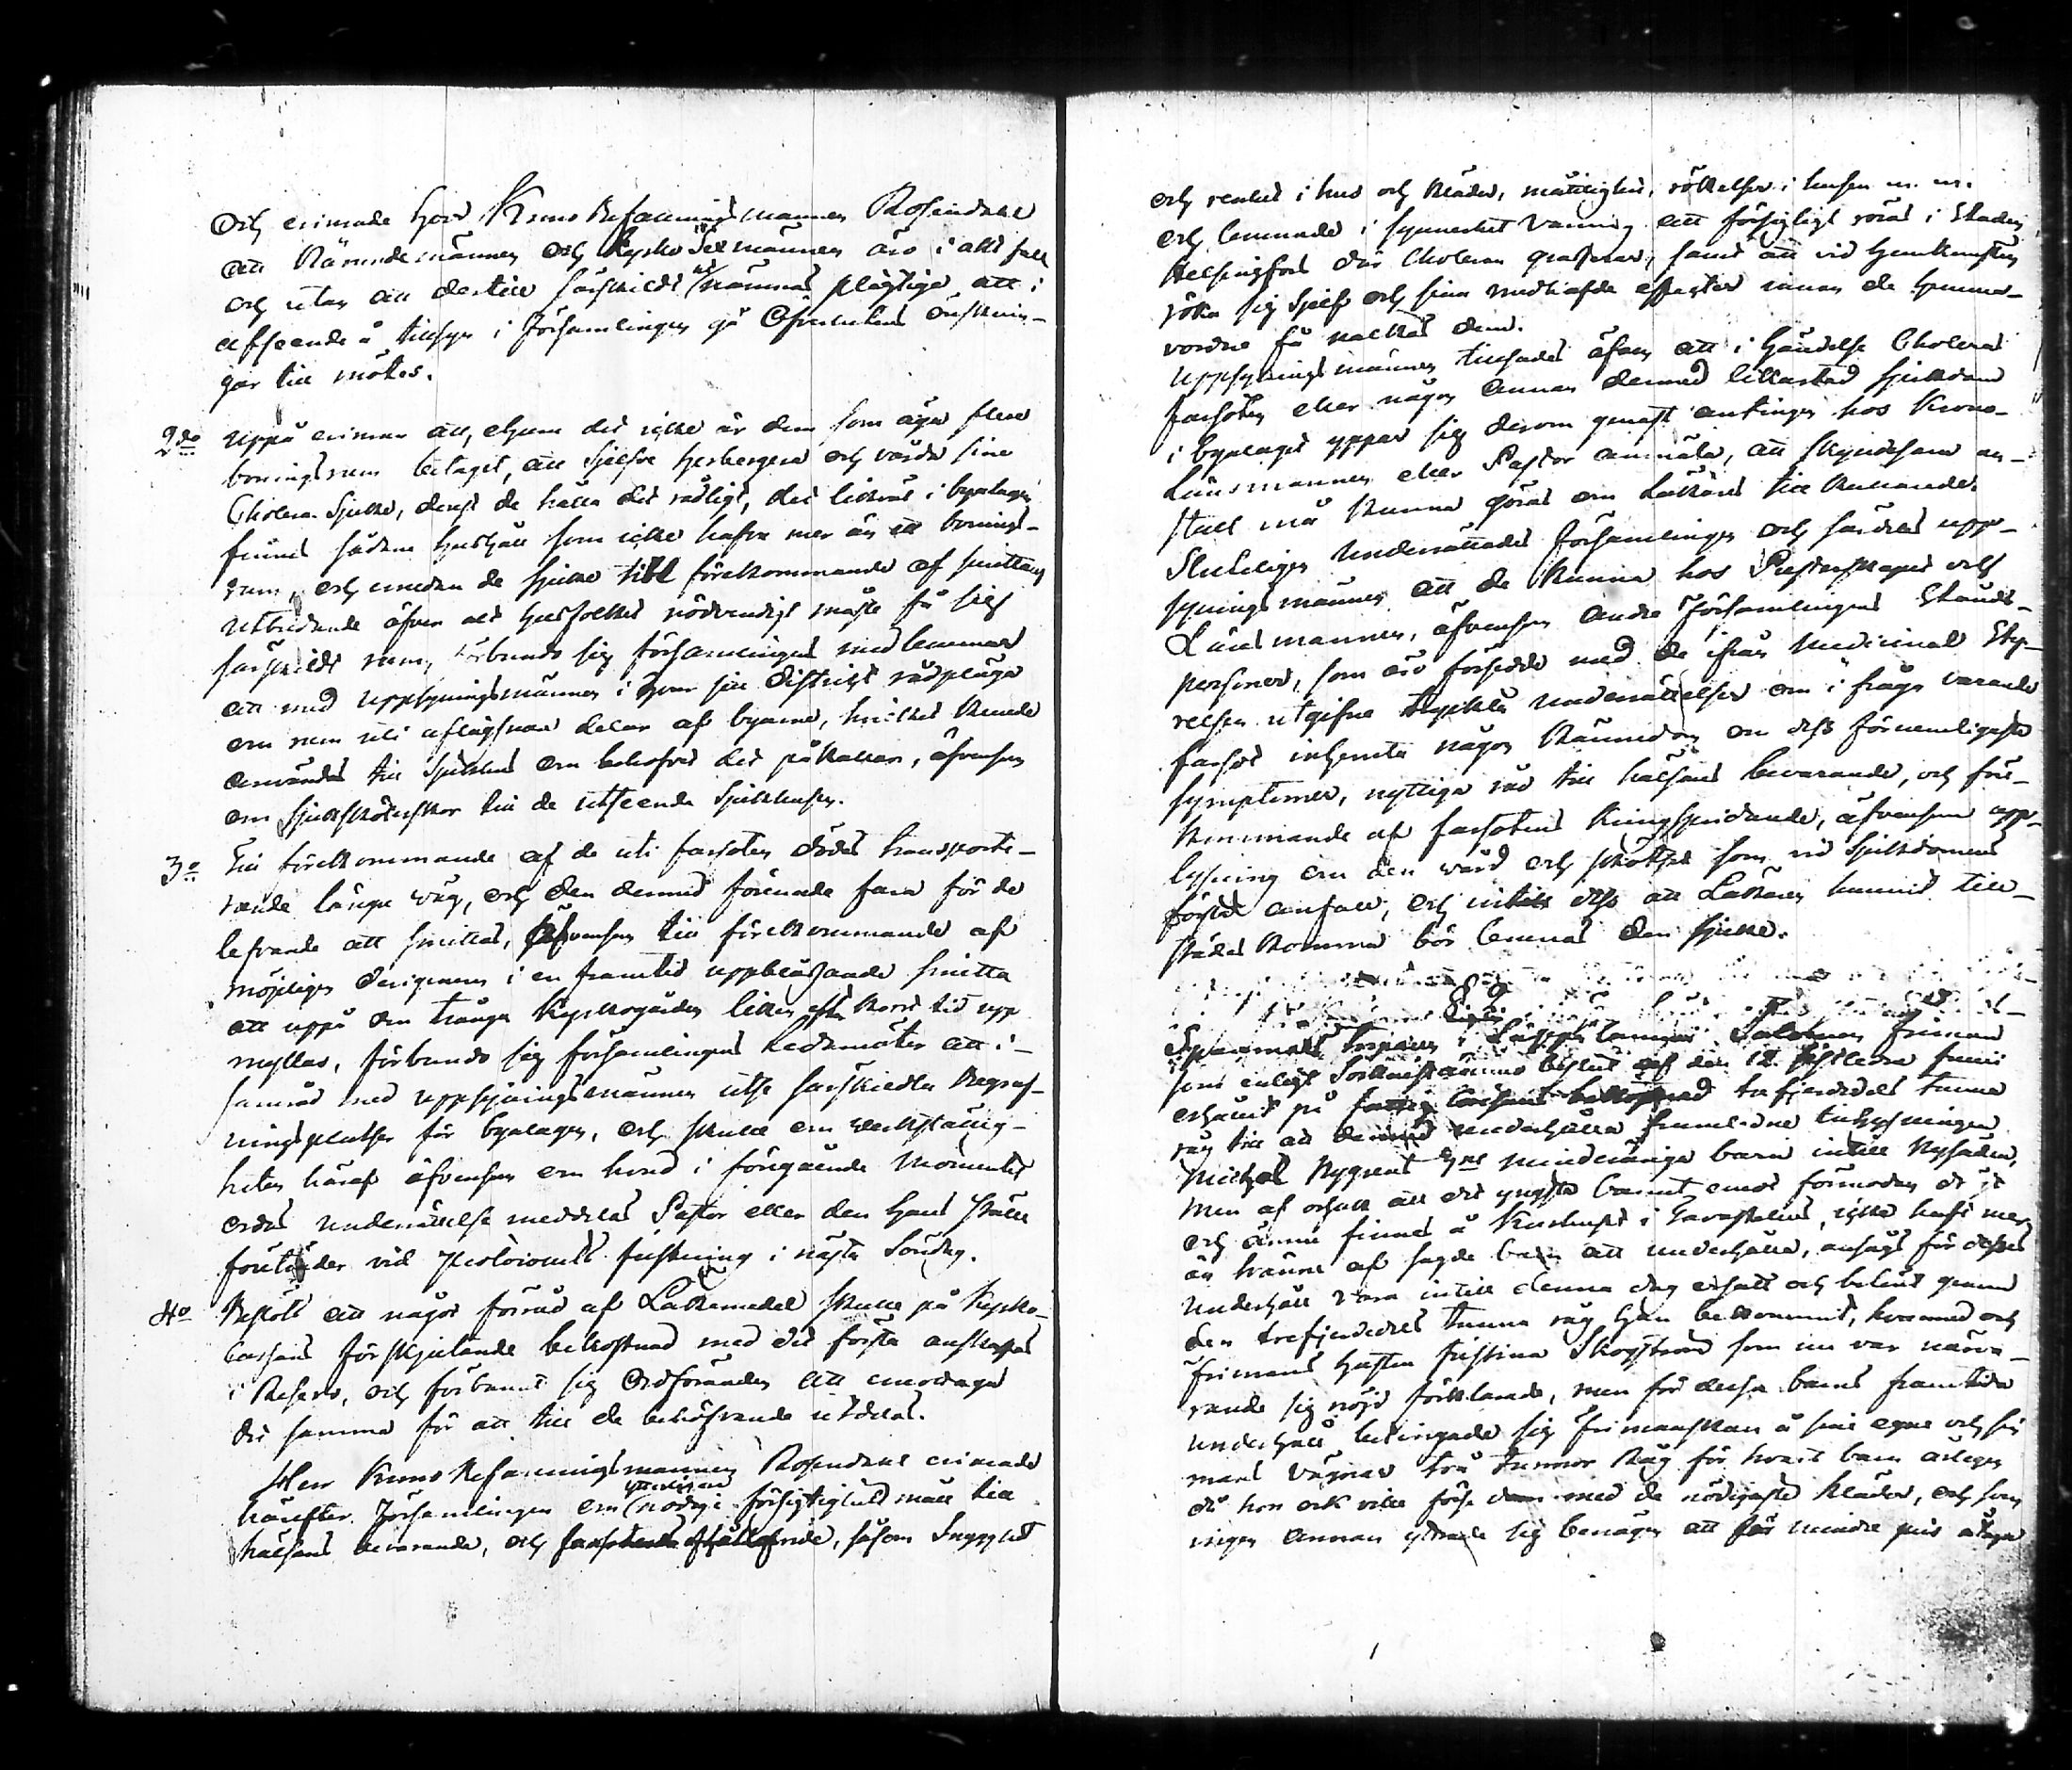 och erinrade Herr Krono Befallningsmannen Rosendahl
att Nämndemännen och Kyrko Sexmännen äro i allt fall
och utan att dertill särskildt nämnas pligtige att i
afseende å tillsyn i Församlingen gå Öfverhetens önsknin-
gar till mötes.
2do Uppå erinran att, ehuru det icke är dem som äga flere
boningsrum betaget, att sjelfve herbergera och vårda sine
Cholera Sjuke, derest de hålla det rådligt, det likväl i byalagen
finnes sådane hushåll som icke hafva mer än ett bonings-
rum, och emedan de sjuke till förekommande af smittans
utbredande äfven ur husfolket nödvendigt måste få sig
särskildt rum, förbundo sig församlingens medlemmar
att med uppsyningsmännen i hvar sitt District rådpläga
om rum uti aflägsnare delar af byarne, hvilket kunde
användas till Sjukhus om behofvet det påkallar, äfvensom
om Sjuksköterskor till de utseende Sjukhusen.
3o Till förekommande af de uti farsoten dödes transporte-
rande långa väg, och den dermed förenade fara för de
lefvande att smittas, äfvensom till förekommande af
möjligen derigenom i en framtid uppblåsande smitta
att uppå den trånga Kyrkogården liken efter kort tid upp
myllas, förbundo sig församlingens Ledamöter att i
samråd med uppsyningsmännen utse särskilda Begraf-
ningsplatser för byalagen, och skulle om verkställig-
heten häraf äfvensom om hvad i föregående Momentet
ordas underrättelse meddelas Pastor eller den hans ställe
företräder vid Protocollets justering i nästa Söndag.
4o Beslöts att något förråd af Läkemedel skulle på Kyrko-
Cassans förskjutande bekostnad med det första anskaffas
i Reserv, och förbandt sig Ordföranden att emottaga
det samma för att till de behöfvande utdelas.
Herr Krono Befallningsmannen Rosendahl erinrade
härefter Församlingen om ytterligare nödige försigtighets mått till
hälsans bevarande, och , såsom Snygghet
och renhet i hus och kläder, måttlighet, rökelser i husen m. m.
och lemnade i synnerhet varning att försigtigt röras i Staden
Helsingfors där Choleran grasserar, samt att vid hemkomsten
röka sig sjelf och sina medhafde effecter innan de hemma-
vordne få nalkas dem.
Uppsyningsmännen tillsades äfven att i händelse Cholera
farsoten eller någon annan dermed likartad sjukdom
i byalaget yppar sig derom genast antingen hos Krono-
Länsmannen eller Pastor anmäla, att skyndsam an-
stalt må kunna göras om Läkares tillkallande.
Slutligen underrättades församlingen och särdeles upp-
syningsmännen att de kunna hos Presterskapet och
Länsmannen, äfvensom andre Församlingens Stånds-
personer, som äro försedde med de ifrån Medicinal Sty-
relsen utgifne tryckta underrättelser om i fråga varande
farsot inhemta någon kännedom om dess förnemligaste
symptomer, nyttiga råd till hälsans bevarande, och före-
kommande af farsotens kringspridande, äfvensom upp-
lysning om den vård och skötsel som vid Sjukdomens
första anfall, och intill dess att Läkaren hunnit till-
städes komma bör lemnas den sjuke.
§
i Salomon Friman
som enligt Sockenstämmo beslut af den 12 sistledne Junii
erhållit på trefjerdedels tunna
råg till att underhålla framlidne
Michel Nygrens minderåriga barn intill Nysåden,
men af orsak att det yngsta barnet emot förmodan då
och ännu finnes å Kurhuset i Tavastehus, icke haft mer
än tvänne af sagde barn att underhålla, ansågs för desses
underhåll vara intill denna dag ersatt och betalt genom
den trefjerdedels tunna råg han bekommit, hvarmed och
Frimans hustru Christina Skogström som nu var närva-
rande sig nöjd förklarade, men för dessa barns framtida
underhåll betingade sig Frimanskan å sine egne och sin
mans vägnar två tunnor Råg för hvart barn årligen
då hon ock ville förse dem med de nödigaste kläder, och som
ingen annan yttrade sig benägen att för mindre pris åtaga